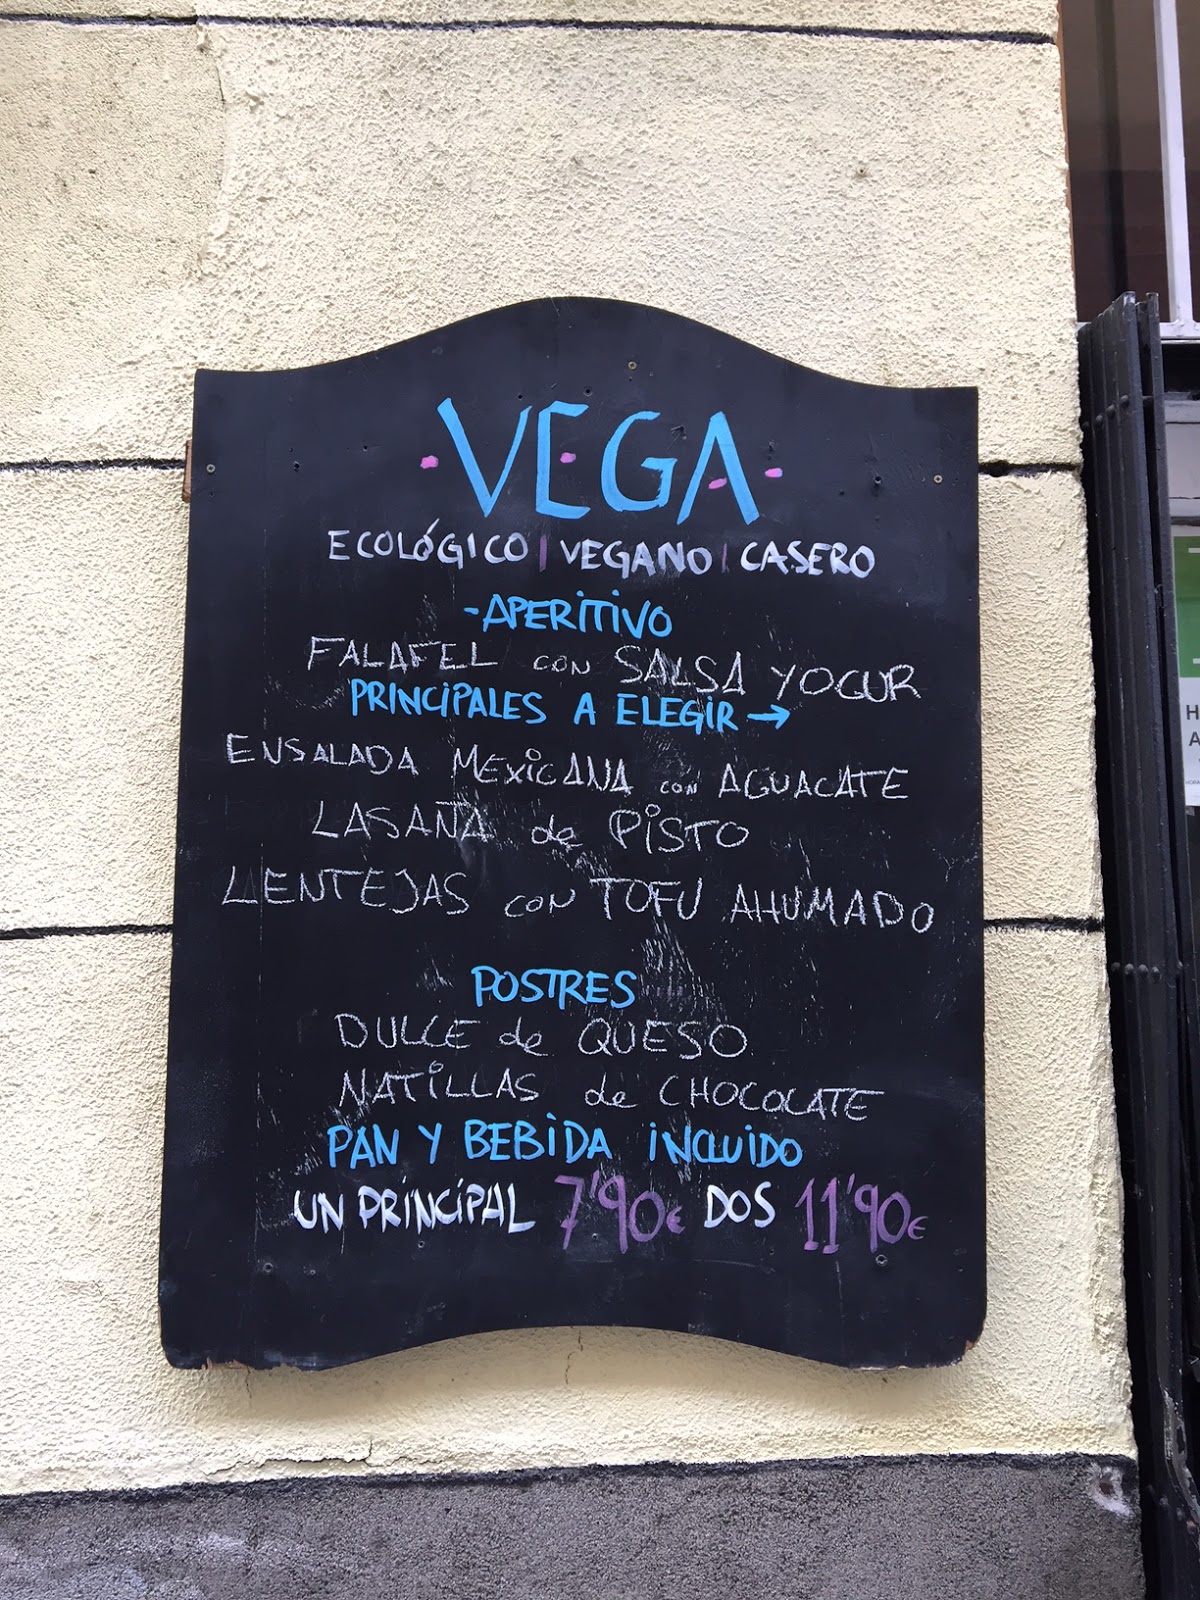 VEGA
ECOLÓGICO | VEGANO | CASERO
-APERITIVO
FALAFEL con SALSA YOGUR
PRINCIPALES A ELEGIR →
ENSALADA MEXICANA con AGUACATE
LASAÑA de PISTO
LENTEJAS con TOFU AHUMADO
POSTRES
DULCE de QUESO
NATILLAS de CHOCOLATE
PAN Y BEBIDA INCLUIDO
UN PRINCIPAL 7'90€ DOS 11'90€